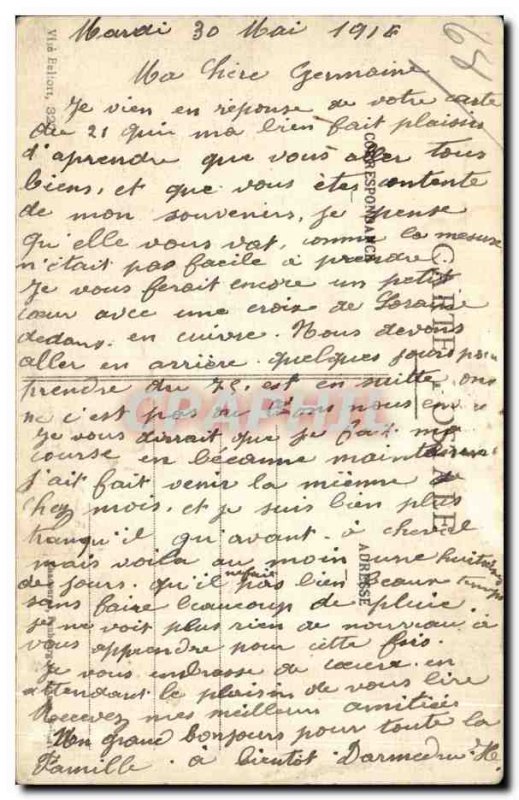 Mardi 30 Mai 1918
63
Ma Chère Germaine
Je vien en réponse de votre carte
du 21 qui ma bien fait plaisirs
d'aprendre que vous aller tous
biens, et que vous êtes contente
de mon souvenirs, je pense
qu'elle vous vat, comme la mesure
n'était pas facile à prendre
Je vous ferait encore un petit
cœur avec une croix de Loraine
dedans en cuivre. Nous devons
aller en arrière quelques jours pour
prendre du 75, est en suitte, ons
ne c'est pas ou l'ons nous
Je vous dirrait que je fait ma
course en bécanne maintenant
j'ait fait venir la mienne de
chez mois, et je suis bien plus
tranqu'il qu'avant à cheval
mais voila au moin une huitaine
de jours qu'il ne fait pas bien beaux temps
sans faire beaucoup de pluie.
je ne voit plus rien de nouveau à
vous apprendre pour cette fois.
Je vous embrasse de cœur en
attendant le plaisir de vous lire
Recevez mes meilleurs amitiées
Un grand bonjours pour toute la
Famille à bientôt Darmedru H.
CARTE POSTALE
CORRESPONDANCE
ADRESSE
Visé Paris
CPAPHIL